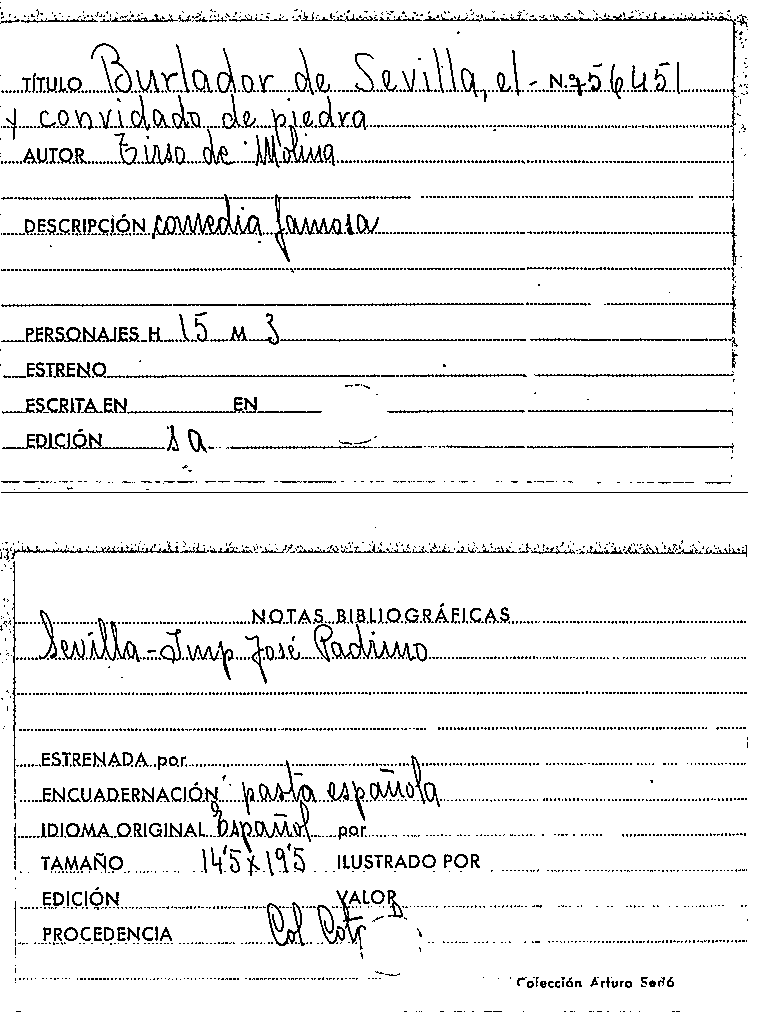 TÍTULO Burlador de Sevilla, el - N.º 756451
y convidado de piedra
AUTOR Tirso de Molina
DESCRIPCIÓN comedia famosa
PERSONAJES H 15 M 3
ESTRENO
ESCRITA EN EN
EDICIÓN s a
NOTAS BIBLIOGRÁFICAS
Sevilla - Imp José Padrino
ESTRENADA por
ENCUADERNACIÓN pasta española
IDIOMA ORIGINAL Español por
TAMAÑO 14'5 x 19'5 ILUSTRADO POR
EDICIÓN VALOR
PROCEDENCIA Col
Colección Arturo Sedó